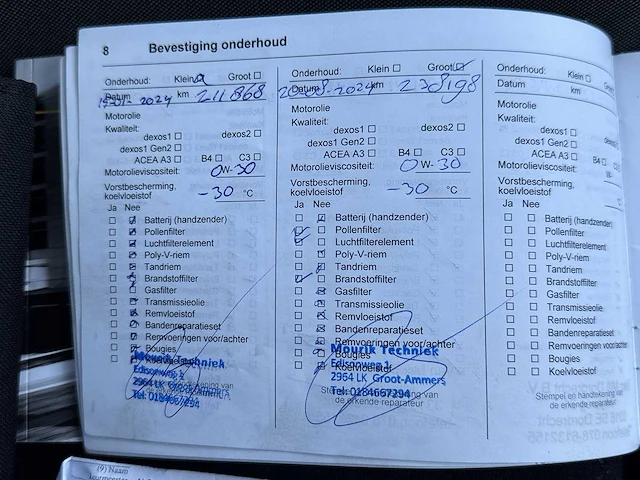 8 Bevestiging onderhoud
Onderhoud: Klein Groot
Datum 2024 km 211868
Motorolie
Kwaliteit:
dexos1 dexos2
dexos1 Gen2
ACEA A3 B4 C3
Motorolieviscositeit: 0W-30
Vorstbescherming, koelvloeistof -30 °C
Ja Nee
Batterij (handzender)
Pollenfilter
Luchtfilterelement
Poly-V-riem
Tandriem
Brandstoffilter
Gasfilter
Transmissieolie
Remvloeistof
Bandenreparatieset
Remvoeringen voor/achter
Bougies
Mourik Techniek
Edisonweg 1
2964 LK Groot-Ammers
Tel: 0184667294
Onderhoud: Klein Groot
Datum 2024 km 238198
Motorolie
Kwaliteit:
dexos1 dexos2
dexos1 Gen2
ACEA A3 B4 C3
Motorolieviscositeit: 0W-30
Vorstbescherming, koelvloeistof -30 °C
Ja Nee
Batterij (handzender)
Pollenfilter
Luchtfilterelement
Poly-V-riem
Tandriem
Brandstoffilter
Gasfilter
Transmissieolie
Remvloeistof
Bandenreparatieset
Remvoeringen voor/achter
Bougies
Koelvloeistof
Mourik Techniek
Edisonweg 1
2964 LK Groot-Ammers
Tel: 0184667294
de erkende reparateur
Onderhoud: Klein
Datum km
Motorolie
Kwaliteit:
dexos1
dexos1 Gen2
ACEA A3 B4
Motorolieviscositeit: W-
Vorstbescherming, koelvloeistof
Ja Nee
Batterij (handzender)
Pollenfilter
Luchtfilterelement
Poly-V-riem
Tandriem
Brandstoffilter
Gasfilter
Transmissieolie
Remvloeistof
Bandenreparatieset
Remvoeringen voor/achter
Bougies
Koelvloeistof
Stempel en handtekening van
de erkende reparateur
(9) Naam